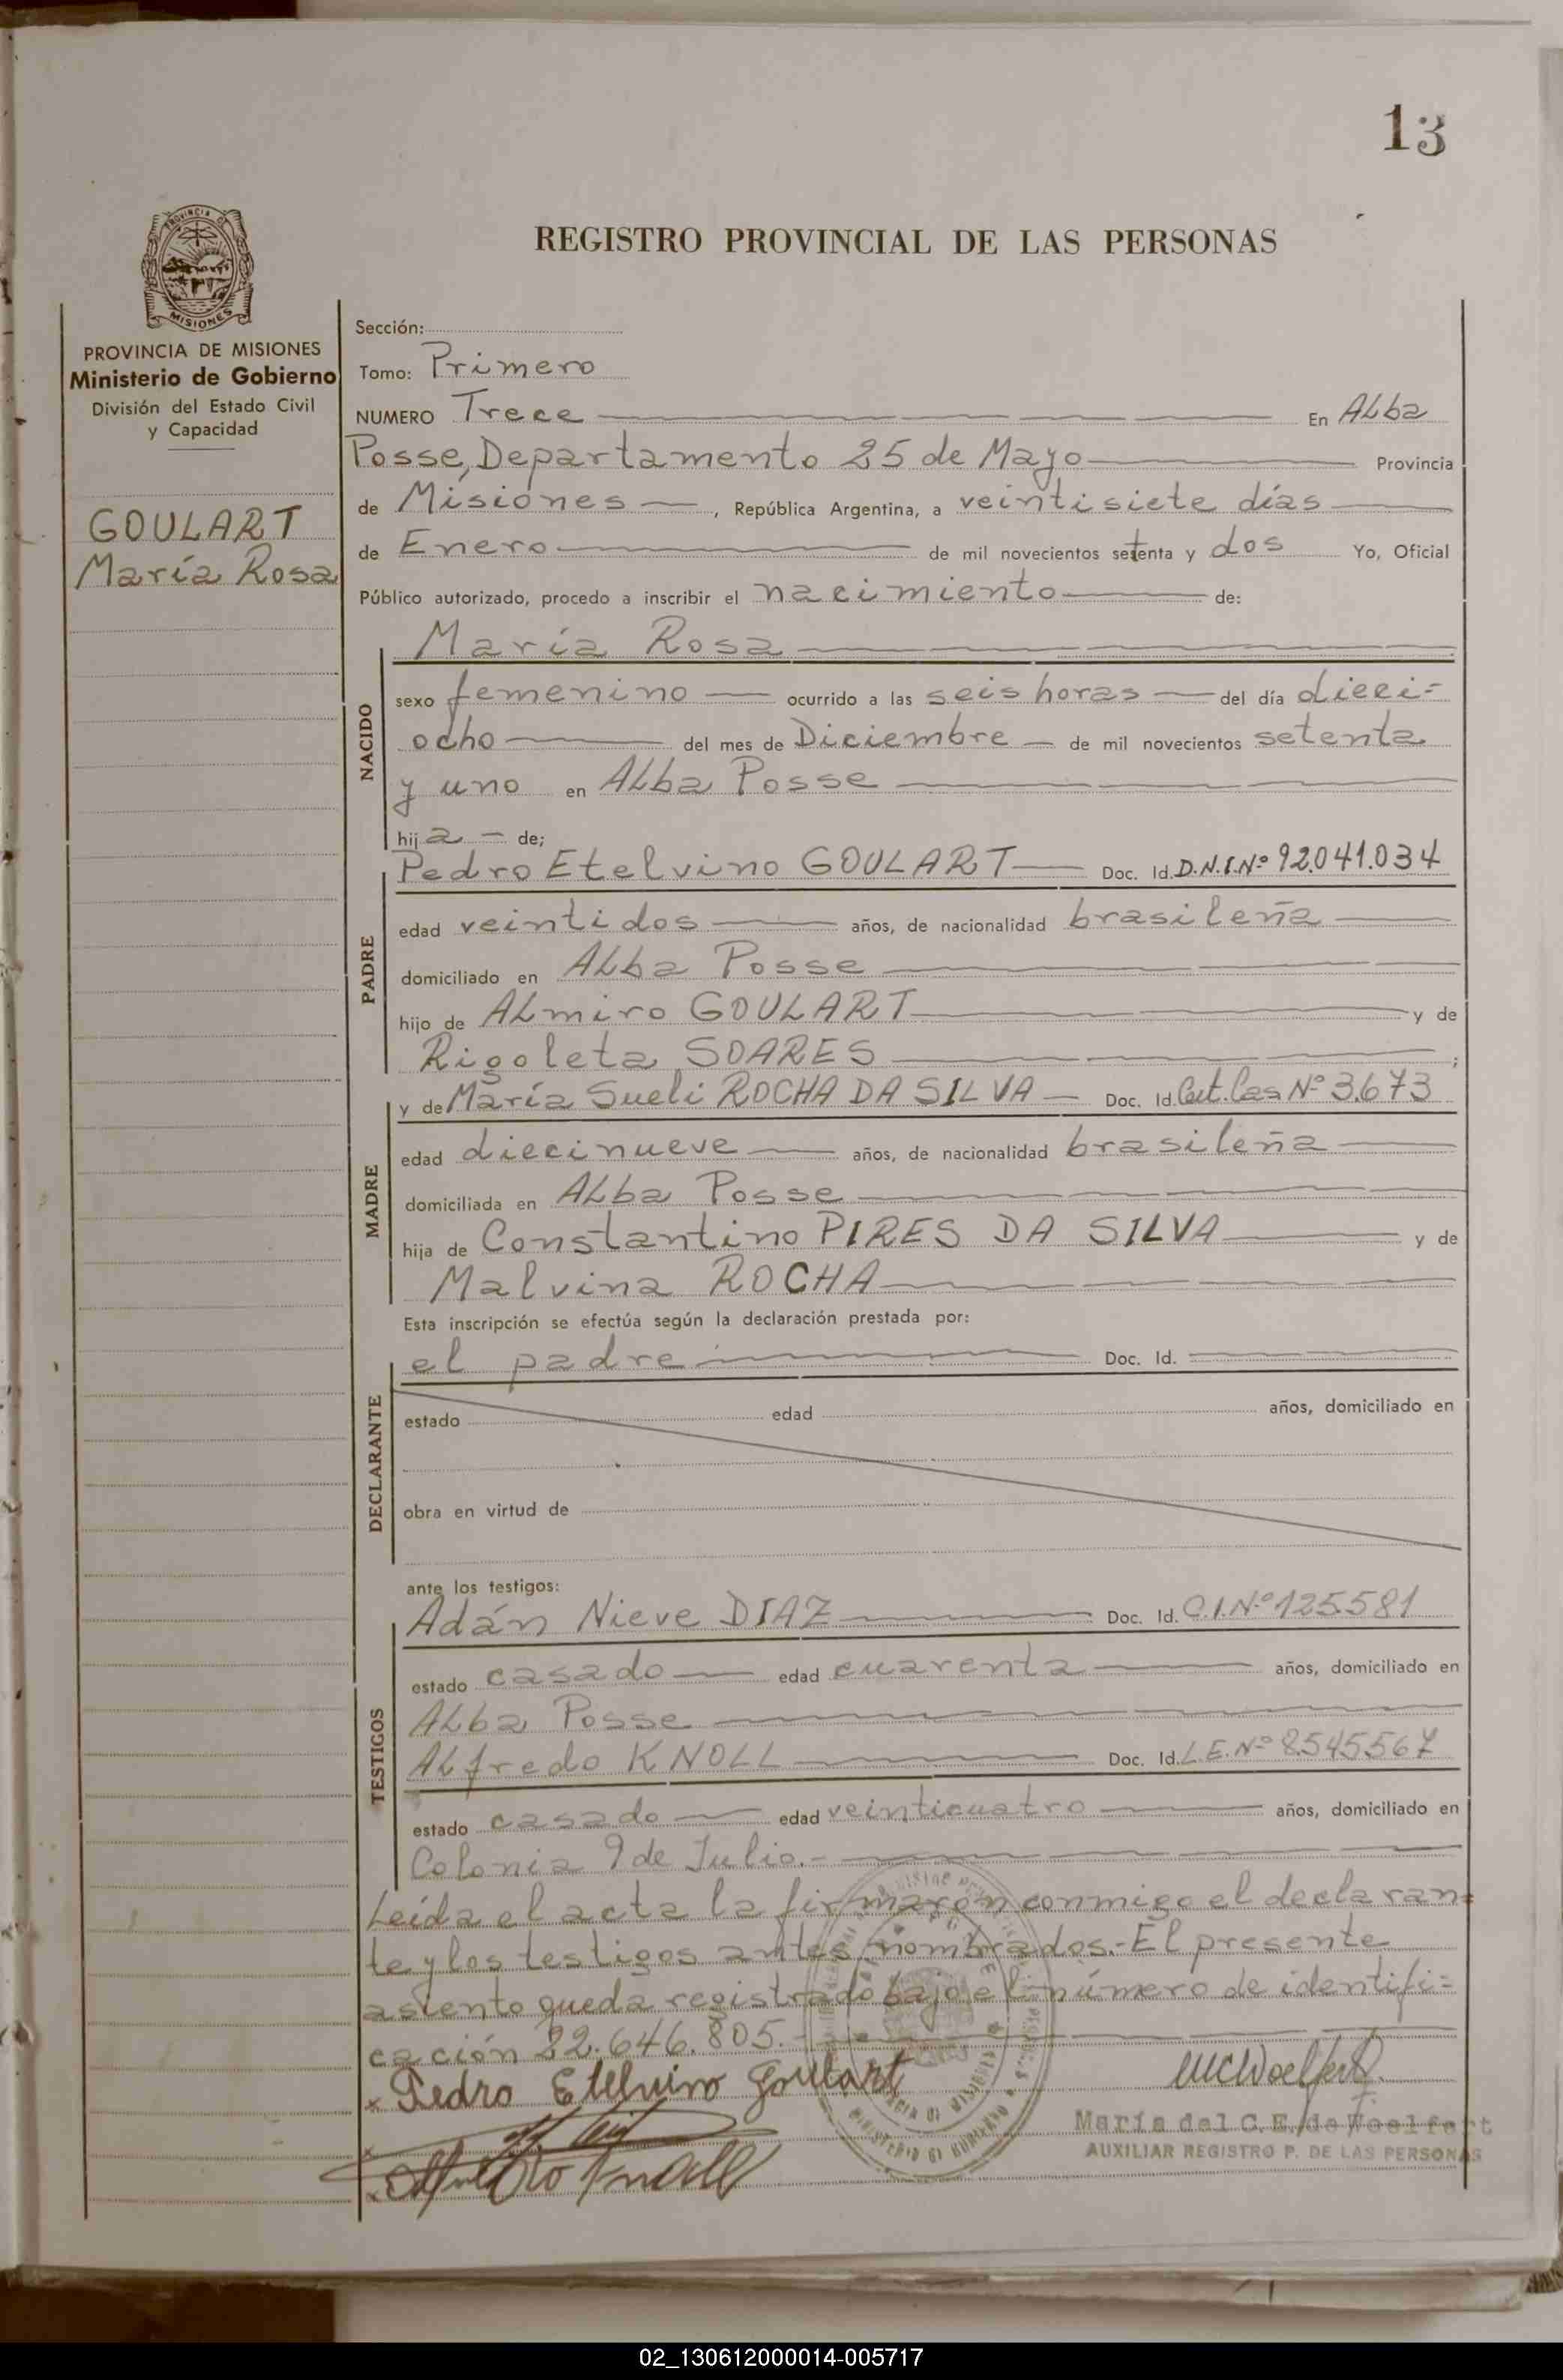 13
REGISTRO PROVINCIAL DE LAS PERSONAS
PROVINCIA DE
MISIONES
PROVINCIA DE MISIONES
Ministerio de Gobierno
División del Estado Civil
y Capacidad
GOULART
María Rosa
Sección:
Tomo: Primero
NUMERO Trece En Alba
Posse, Departamento 25 de Mayo Provincia
de Misiones, República Argentina, a veintisiete días
de Enero de mil novecientos setenta y dos Yo, Oficial
Público autorizado, procedo a inscribir el nacimiento de:
María Rosa
NACIDO
sexo femenino ocurrido a las seis horas del día dieci=
ocho del mes de Diciembre de mil novecientos setenta
y uno en Alba Posse
hija de;
PADRE
Pedro Etelvino GOULART Doc. Id. D.N.I.Nº 92.041.034
edad veintidos años, de nacionalidad brasileña
domiciliado en Alba Posse
hijo de Almiro GOULART y de
Rigoleta SOARES;
MADRE
y de María Sueli ROCHA DA SILVA Doc. Id. Cert. Cas Nº 3.673
edad diecinueve años, de nacionalidad brasileña
domiciliada en Alba Posse
hija de Constantino PIRES DA SILVA y de
Malvina ROCHA
Esta inscripción se efectúa según la declaración prestada por:
DECLARANTE
el padre Doc. Id.
estado edad años, domiciliado en
obra en virtud de
ante los testigos:
TESTIGOS
Adán Nieve DIAZ Doc. Id. C.I.Nº 125.581
estado casado edad cuarenta años, domiciliado en
Alba Posse
Alfredo KNOLL Doc. Id. L.E.Nº 8.545.567
estado casado edad veinticuatro años, domiciliado en
Colonia 9 de Julio.-
Leída el acta la firmaron conmigo el declaran=
te y los testigos antes nombrados.- El presente
asiento queda registrado bajo el número de identifi=
cación 22.646.805.-
x Pedro Etelvino Goulart
Alfredo Knoll
María del C. E. de Woelfert
AUXILIAR REGISTRO P. DE LAS PERSONAS
02_130612000014-005717